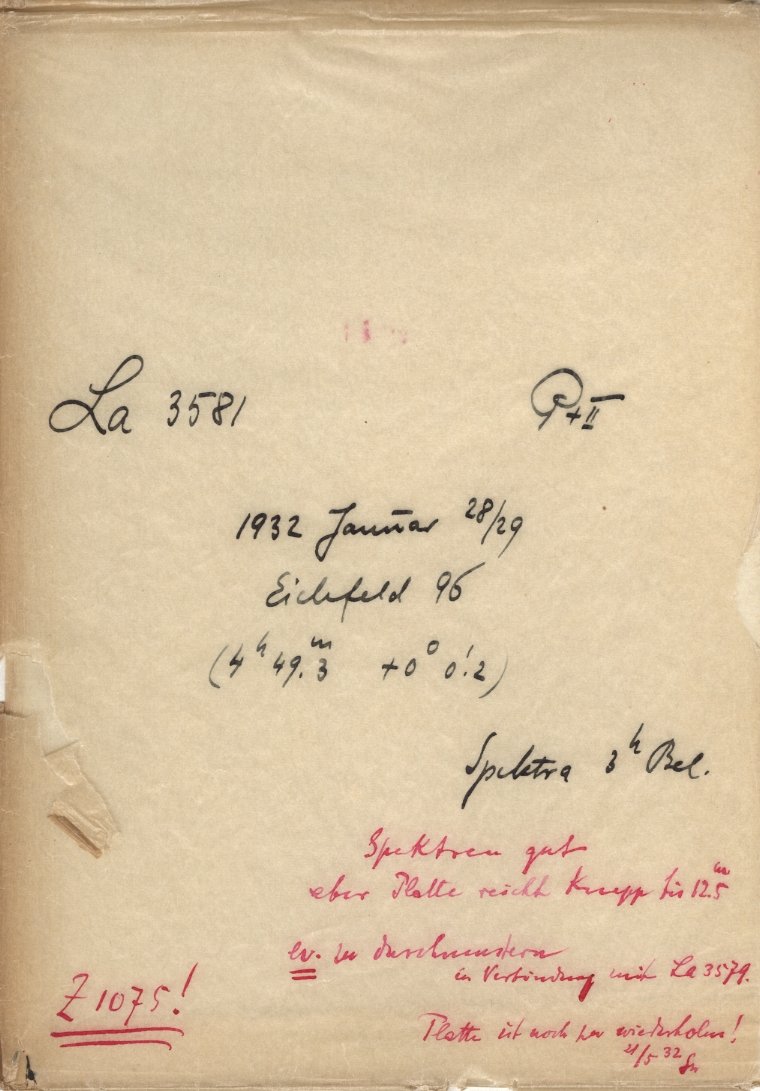 La 3581 P+II
1932 Januar 28/29
Eichfeld 96
(4h 49.m3 +0° 0!2)
Spektra 3h Bel.
Spektren gut
aber Platte reicht knapp bis 12.5m
ev. zu durchmustern
in Verbindung mit La 3579.
Z 1075!
Platte ist noch zu wiederholen!
21/5 32